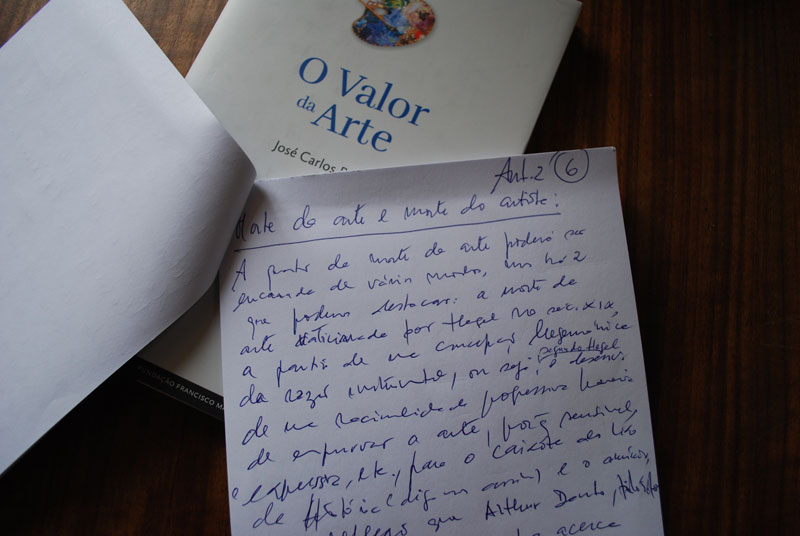 O Valor
da Arte
José Carlos
FUNDAÇÃO FRANCISCO MA
Ant. 2 6
Morte da arte e morte do artista:
A morte da arte poderá ser
encarada de vários modos, mas há 2
que podemos destacar: a morte da
arte por Hegel no séc. XIX
a partir de uma concepção hegemónica
da razão ou seja, segundo Hegel
de uma racionalidade progressiva haveria
de empurrar a arte, poesia sensível,
expressa, etc., para o caixote do lixo
da História (digamos assim) e o anúncio,
que Arthur Danto, filósofo
acerca